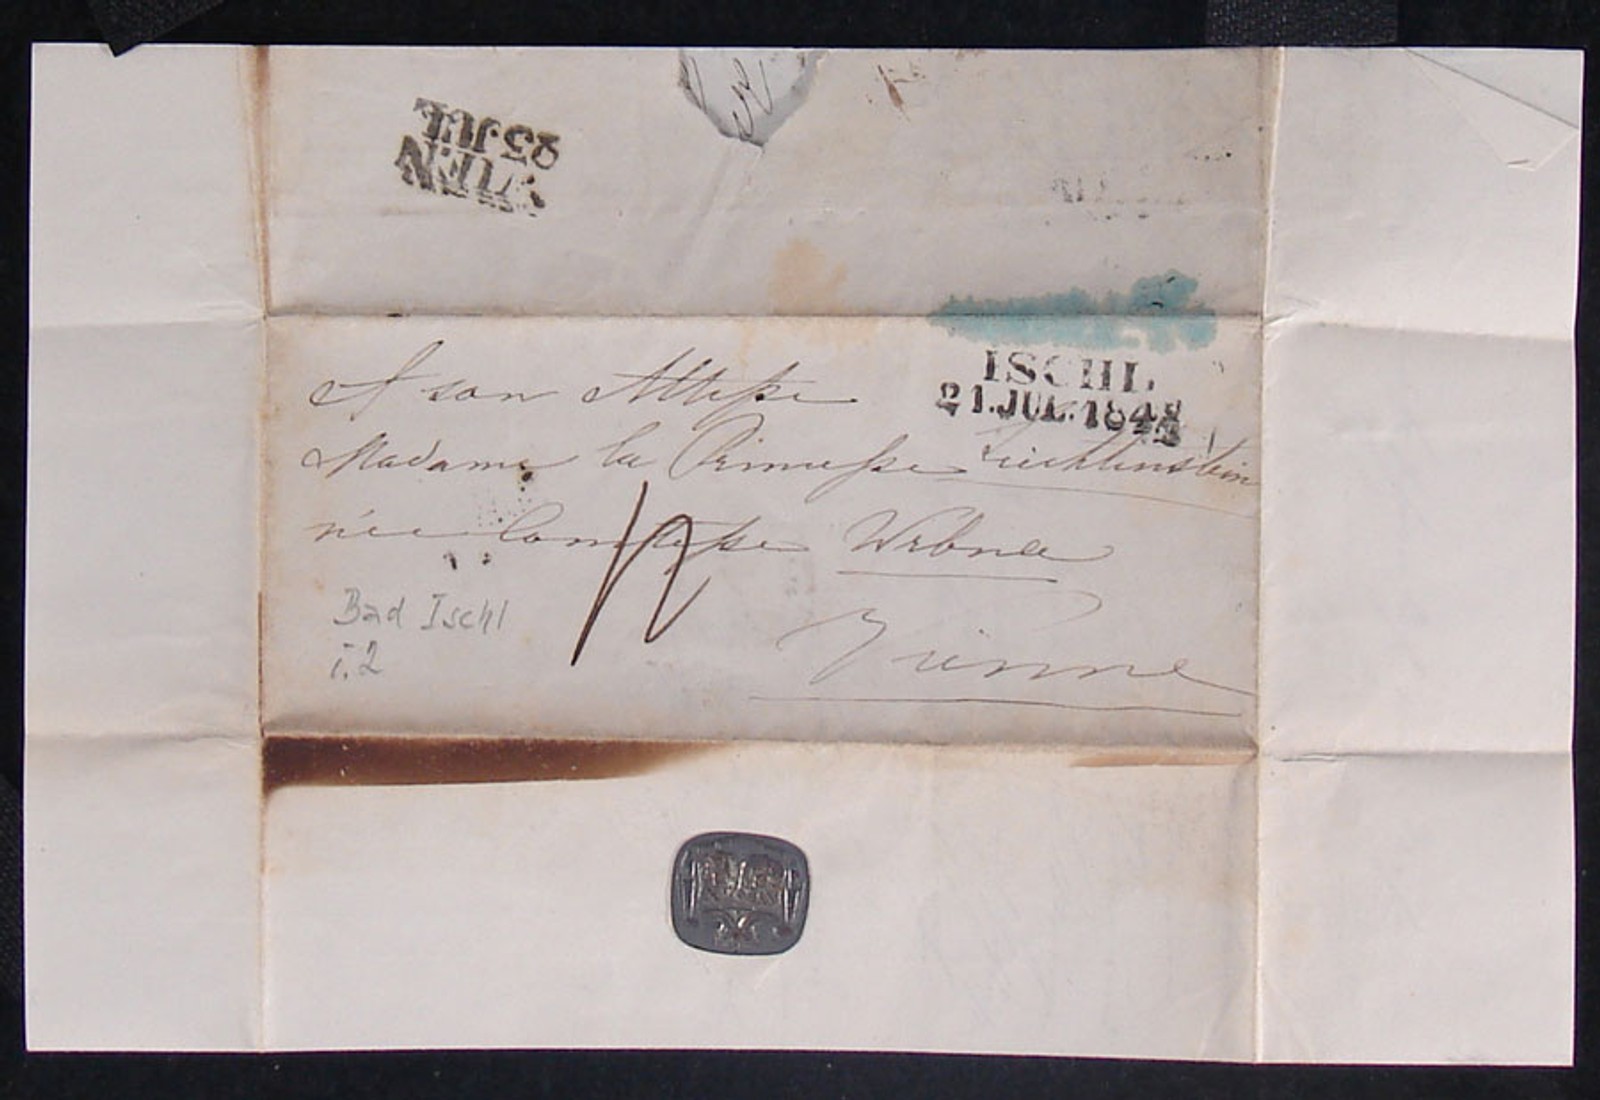 WIEN
23 JUL
ISCHL
21.JUL.184
A son Altesse
Madame la Princesse Liechtenstein
née Comtesse Wrbna
12
Bad Ischl
i.2
Vienne